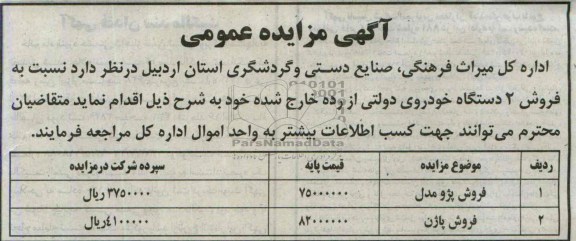 آگهی مزایده عمومی
اداره کل میراث فرهنگی، صنایع دستی وگردشگری استان اردبیل درنظر دارد نسبت به
فروش ۲ دستگاه خودروی دولتی از رده خارج شده خود به شرح ذیل اقدام نماید متقاضیان
محترم می‌توانند جهت کسب اطلاعات بیشتر به واحد اموال اداره کل مراجعه فرمایند.
ParsNamadData
ردیف موضوع مزایده قیمت پایه سپرده شرکت درمزایده
۱ فروش پژو مدل ۷۵۰۰۰۰۰۰ ۳۷۵۰۰۰۰ ریال
۲ فروش پاژن ۸۲۰۰۰۰۰۰ ٤۱۰۰۰۰۰ریال